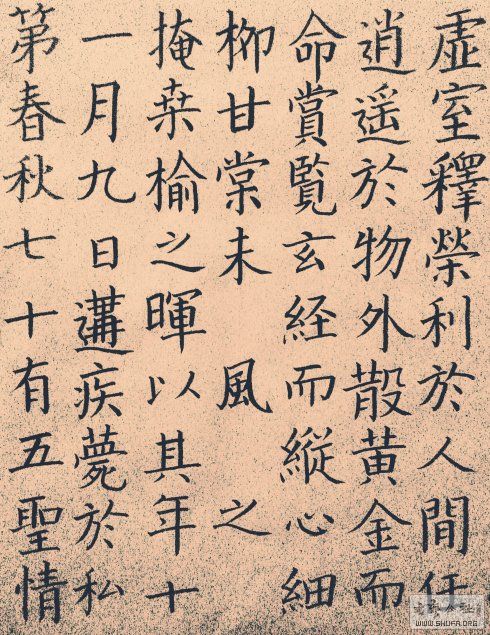 虛室釋榮利於人間任
逍遥於物外散黄金而
命賞覧玄経而縱心細
栁甘棠未風之
掩桒榆之暉以其年十
一月九日遘疾薨於私
第春秋七十有五聖情
WWW.SHUFA.ORG